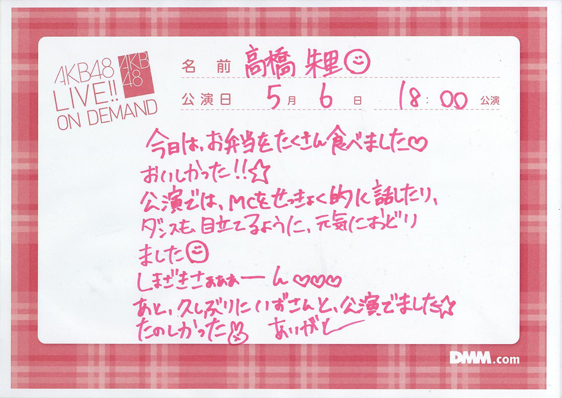 AKB48
LIVE!!
ON DEMAND
AKB
48
名 前 高橋 朱里
公演日 5月 6日 18:00 公演
今日は、お弁当をたくさん食べました♡
おいしかった!!☆
公演では、MCをせっきょく的に話したり、
ダンスも、目立てるように、元気におどり
ました☺
しまざきさぁぁぁーん♡♡♡
あと、久しぶりにいずさんと、公演でました☆
たのしかった ありがとー
DMM.com